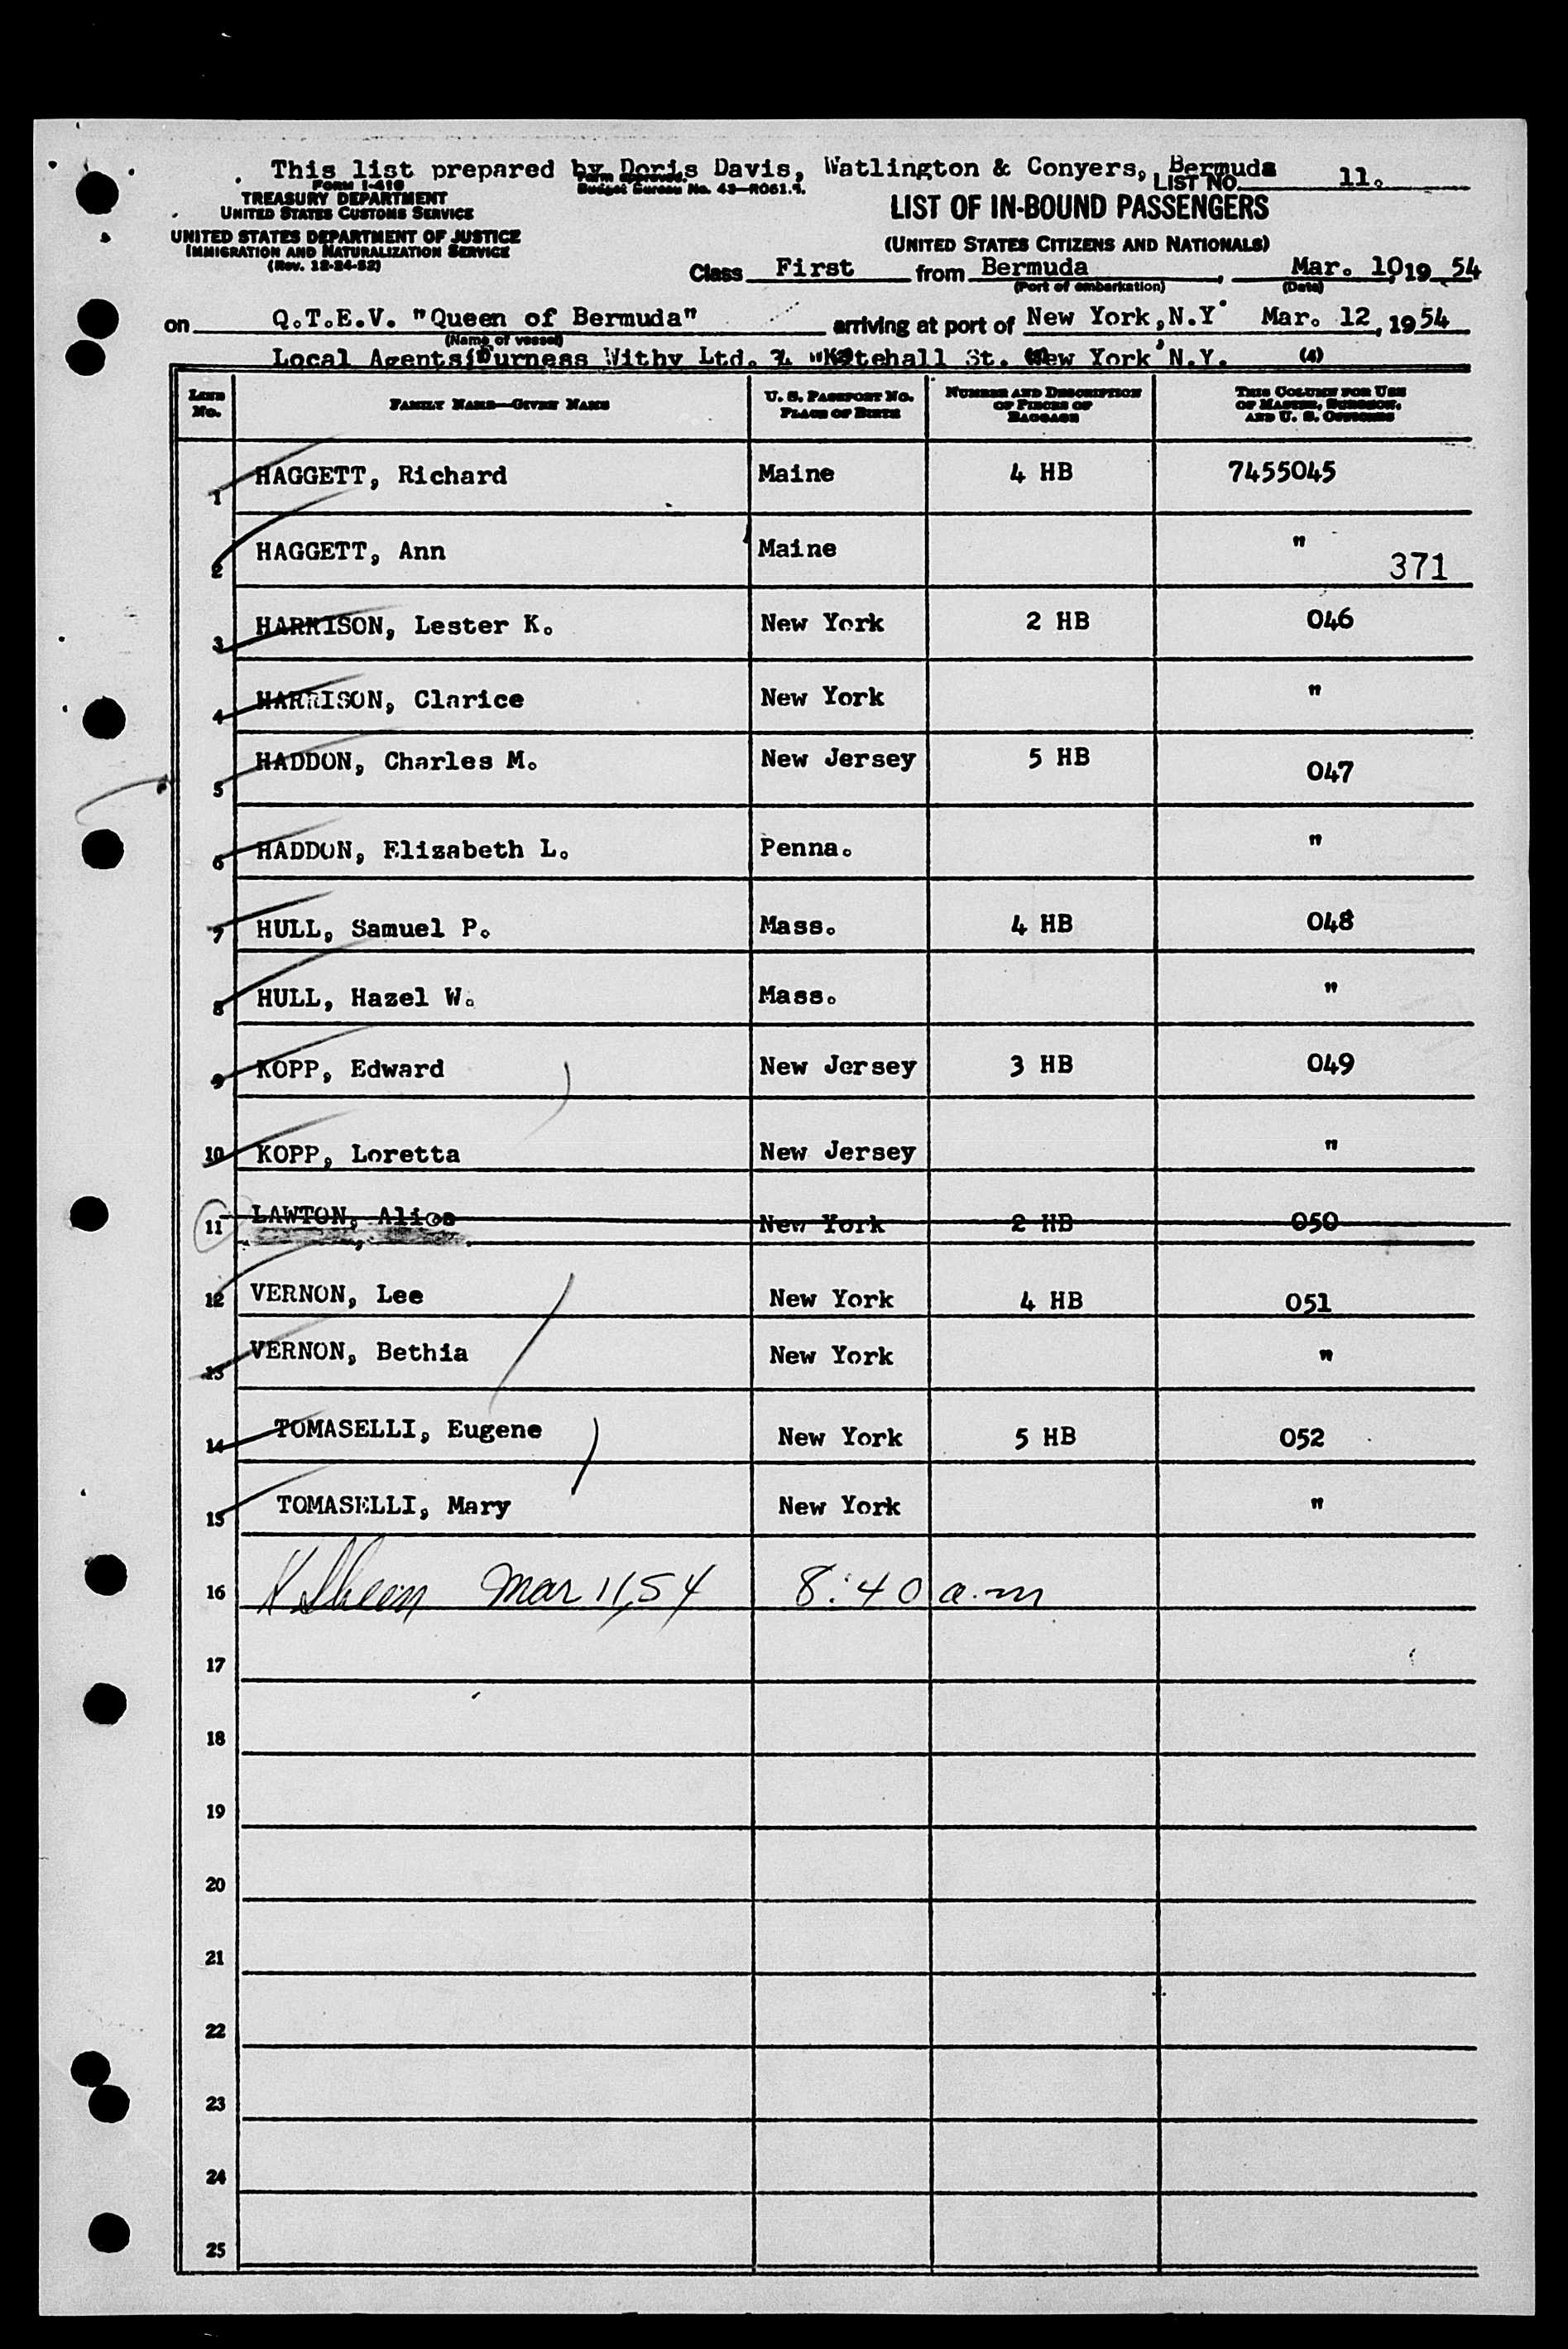 This list prepared by Doris Davis, Watlington & Conyers, Bermuda
FORM I-418
Form approved.
Budget Bureau No. 43-R061.4.
LIST NO. 11.
TREASURY DEPARTMENT
UNITED STATES CUSTOMS SERVICE
LIST OF IN-BOUND PASSENGERS
UNITED STATES DEPARTMENT OF JUSTICE
IMMIGRATION AND NATURALIZATION SERVICE
(Rev. 12-24-52)
(UNITED STATES CITIZENS AND NATIONALS)
Class First from Bermuda, Mar. 10, 19 54
(Port of embarkation) (Date)
on Q.T.E.V. "Queen of Bermuda" arriving at port of New York, N.Y. Mar. 12, 19 54
(Name of vessel)
Local Agents; Furness Withy Ltd. St. New York, N.Y. (4)
LINE NO. FAMILY NAME—GIVEN NAME U. S. PASSPORT NO. PLACE OF BIRTH NUMBER AND DESCRIPTION OF PIECES OF BAGGAGE THIS COLUMN FOR USE OF MASTER, SURGEON, AND U. S. OFFICERS
1 HAGGETT, Richard Maine 4 HB 7455045
2 HAGGETT, Ann Maine " 371
3 HARRISON, Lester K. New York 2 HB 046
4 HARRISON, Clarice New York "
5 HADDON, Charles M. New Jersey 5 HB 047
6 HADDON, Elizabeth L. Penna. "
7 HULL, Samuel P. Mass. 4 HB 048
8 HULL, Hazel W. Mass. "
9 KOPP, Edward New Jersey 3 HB 049
10 KOPP, Loretta New Jersey "
11 LAWTON, Alice New York 2 HB 050
12 VERNON, Lee New York 4 HB 051
13 VERNON, Bethia New York "
14 TOMASELLI, Eugene New York 5 HB 052
15 TOMASELLI, Mary New York "
16 Mar 11, 54 8:40 a.m
17
18
19
20
21
22
23
24
25